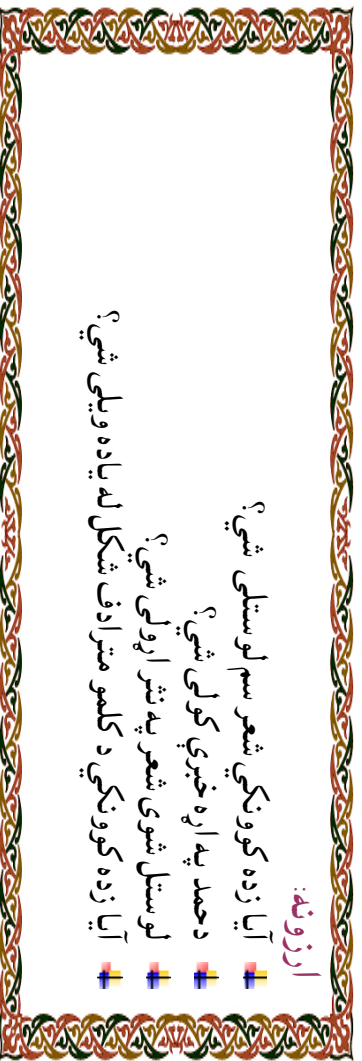 ارزونه:
آیا زده کوونکي شعر سم لوستلی شي؟
دحمد په اړه خبرې کولی شي؟
لوستل شوی شعر په نثر اړولی شي؟
آیا زده کوونکي د کلمو مترادف شکل له یاده ویلی شي؟